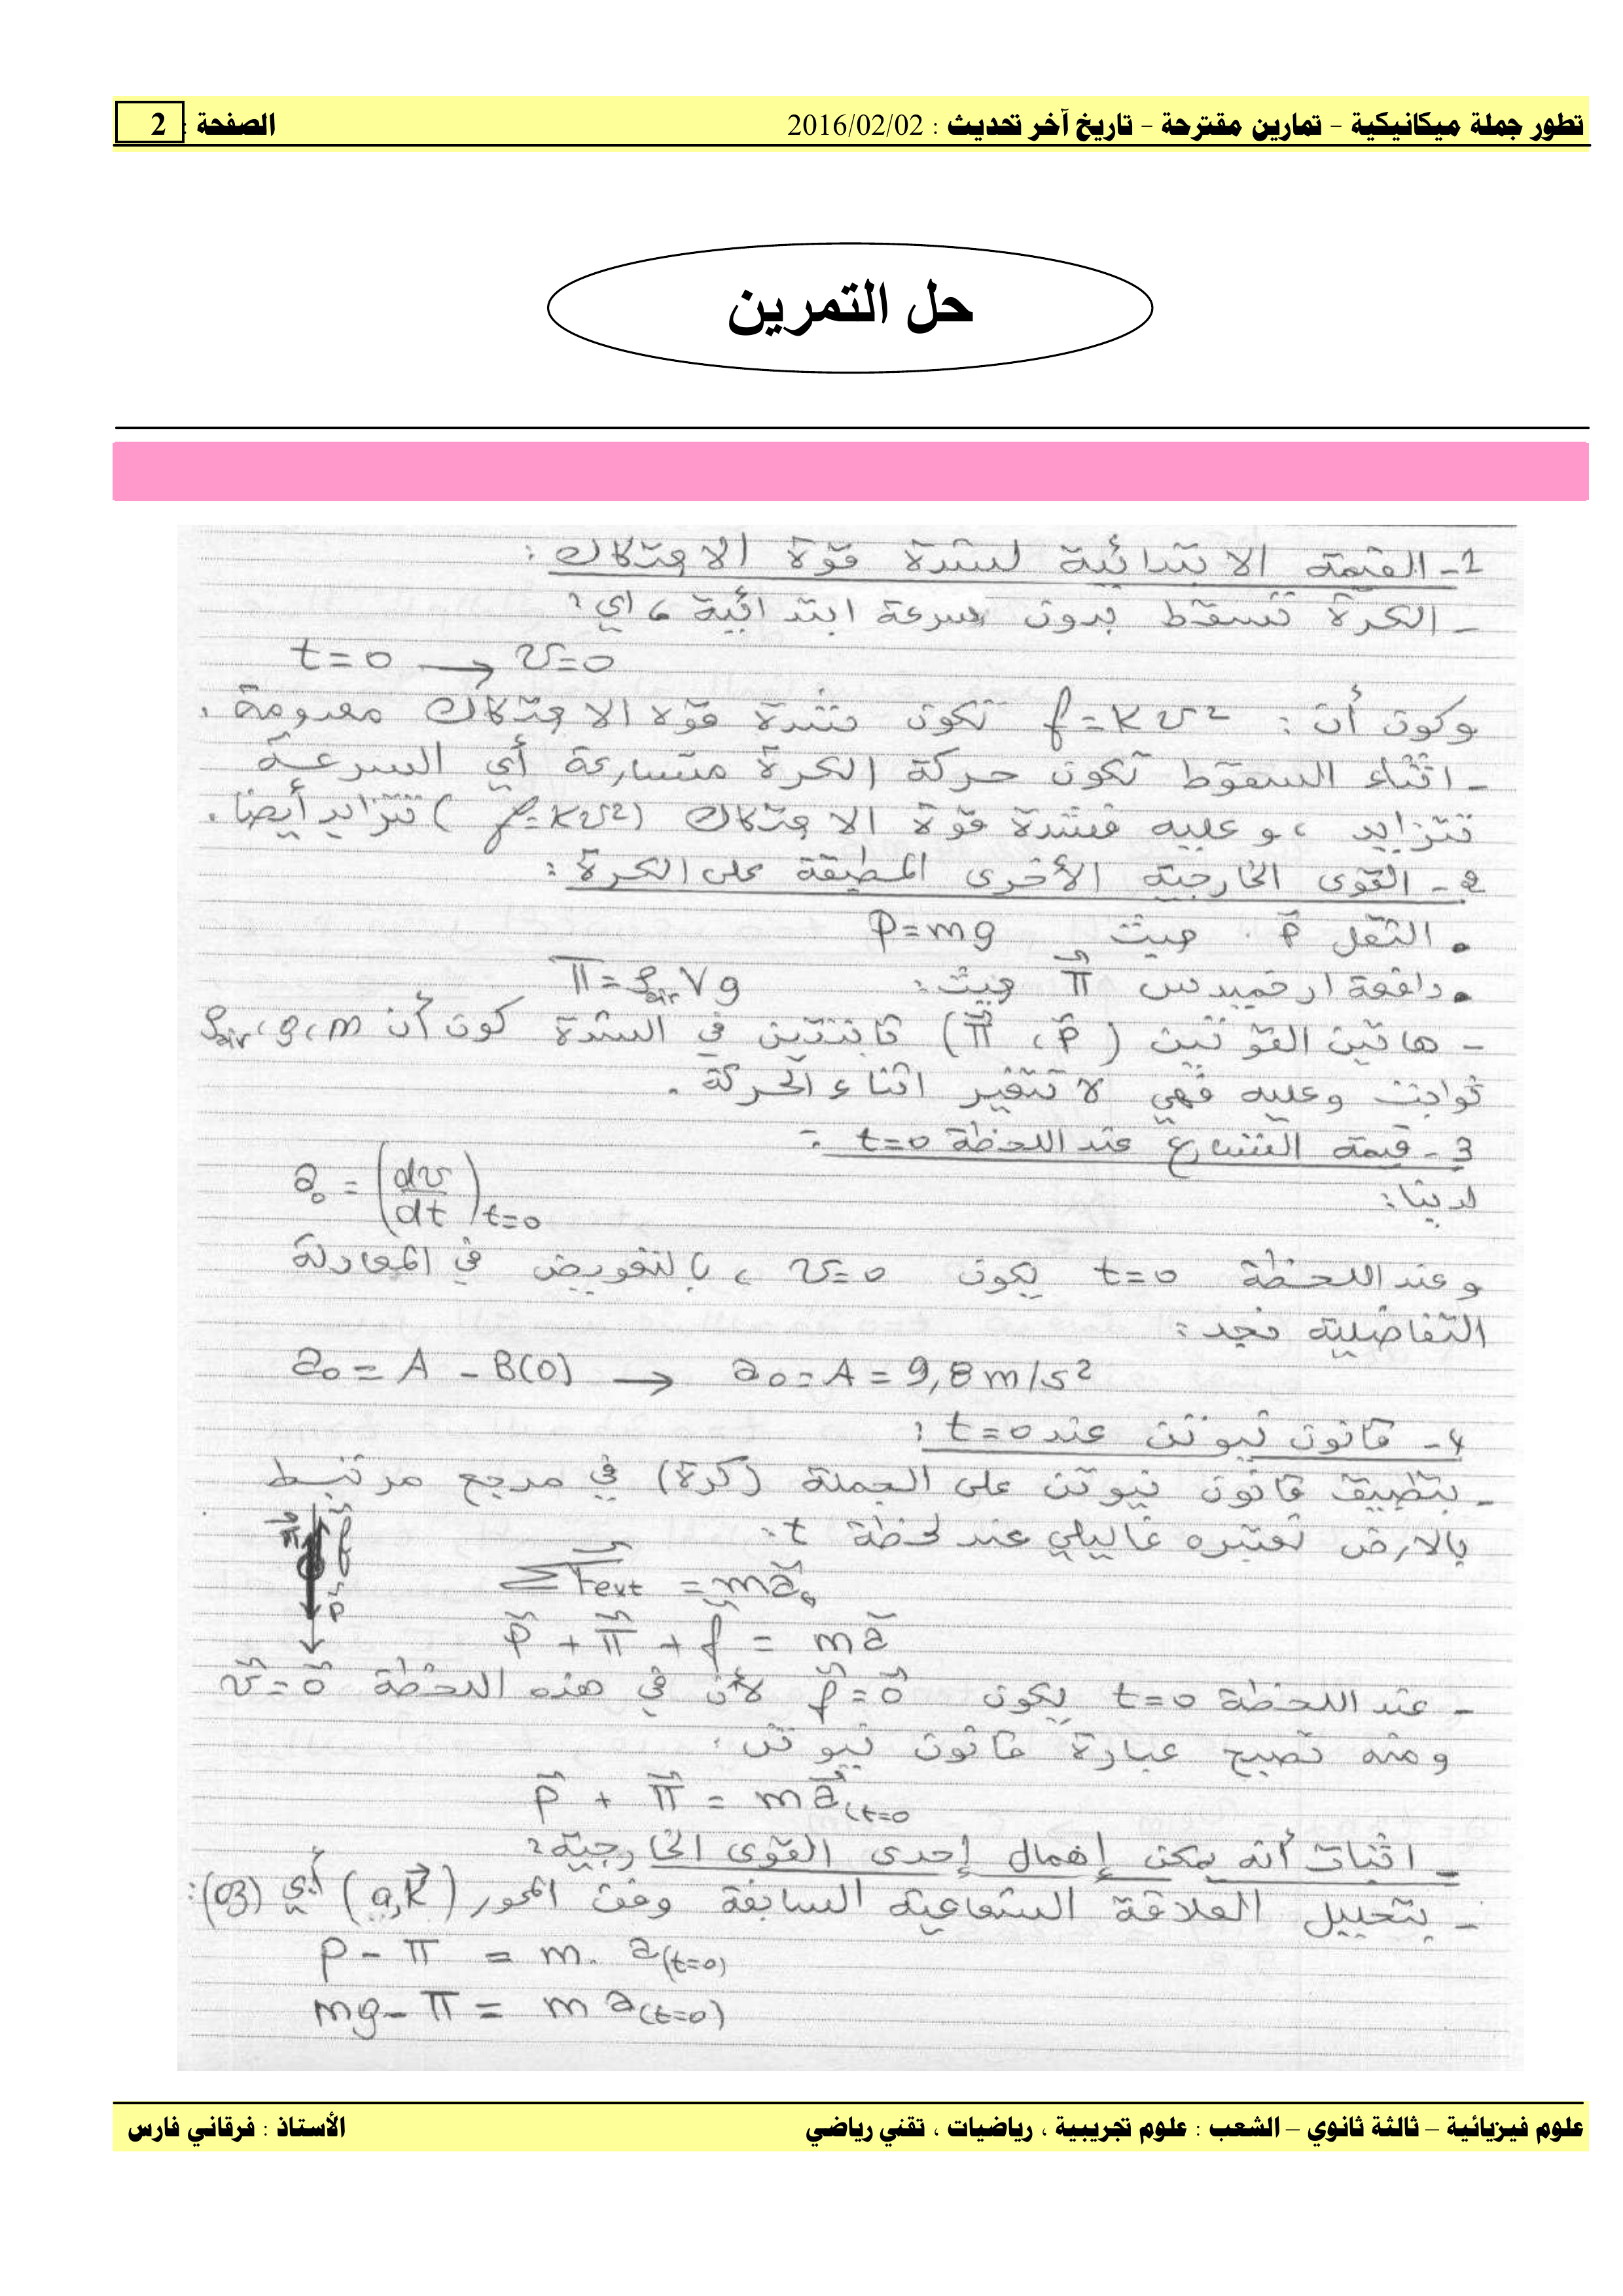 تطور جملة ميكانيكية – تمارين مقترحة – تاريخ آخر تحديث : 2016/02/02 الصفحة : 2
حل التمرين
1- القيمة الابتدائية لشدة قوة الاحتكاك :
- الكرة تسقط بدون سرعة ابتدائية ، اي :
t=0 → v=0
وكون أن : f=kv² تكون شدة قوة الاحتكاك معدومة .
- اثناء السقوط تكون حركة الكرة متسارعة أي السرعة
تتزايد ، وعليه فشدة قوة الاحتكاك (f=kv²) تتزايد أيضا .
2- القوى الخارجية الأخرى المطبقة على الكرة :
• الثقل P⃗ حيث P=mg
• دافعة ارخميدس π⃗ حيث : π=ρair V g
- هاتين القوتين (P⃗ ، π⃗) ثابتتين في الشدة كون أن m ، g ، ρair
ثوابت وعليه فهي لا تتغير اثناء الحركة .
3- قيمة التسارع عند اللحظة t=0 :
لدينا :
a₀ = (dv/dt)t=0
وعند اللحظة t=0 يكون v=0 ، بالتعويض في المعادلة
التفاضلية نجد :
a₀ = A - B(0) → a₀ = A = 9,8 m/s²
4- قانون نيوتن عند t=0 :
- بتطبيق قانون نيوتن على الجملة (كرة) في مرجع مرتبط
بالارض نعتبره غاليلي عند لحظة t :
π⃗ f⃗
P⃗
ΣF⃗ext = ma⃗₀
P⃗ + π⃗ + f⃗ = ma⃗
- عند اللحظة t=0 يكون f⃗=0⃗ لأن في هذه اللحظة v⃗=0⃗
ومنه تصبح عبارة قانون نيوتن :
P⃗ + π⃗ = ma⃗(t=0
- اثبات أنه يمكن إهمال إحدى القوى الخارجية :
- بتحليل العلاقة الشعاعية السابقة وفق المحور (o,k⃗) أي (oz) :
P - π = m. a(t=0)
mg - π = m a(t=0)
علوم فيزيائية – ثالثة ثانوي – الشعب : علوم تجريبية ، رياضيات ، تقني رياضي الأستاذ : فرقاني فارس